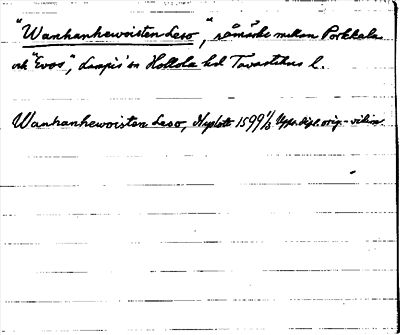 "Wanhanhewoisten Leso", råmärke mellan Porkkala
och "Evos", Lampis' sn Hollola hd Tavastehus l.
Wanhanhewoisten Leso, Nyslott 1599 1/3 Upps. dipl. orig.